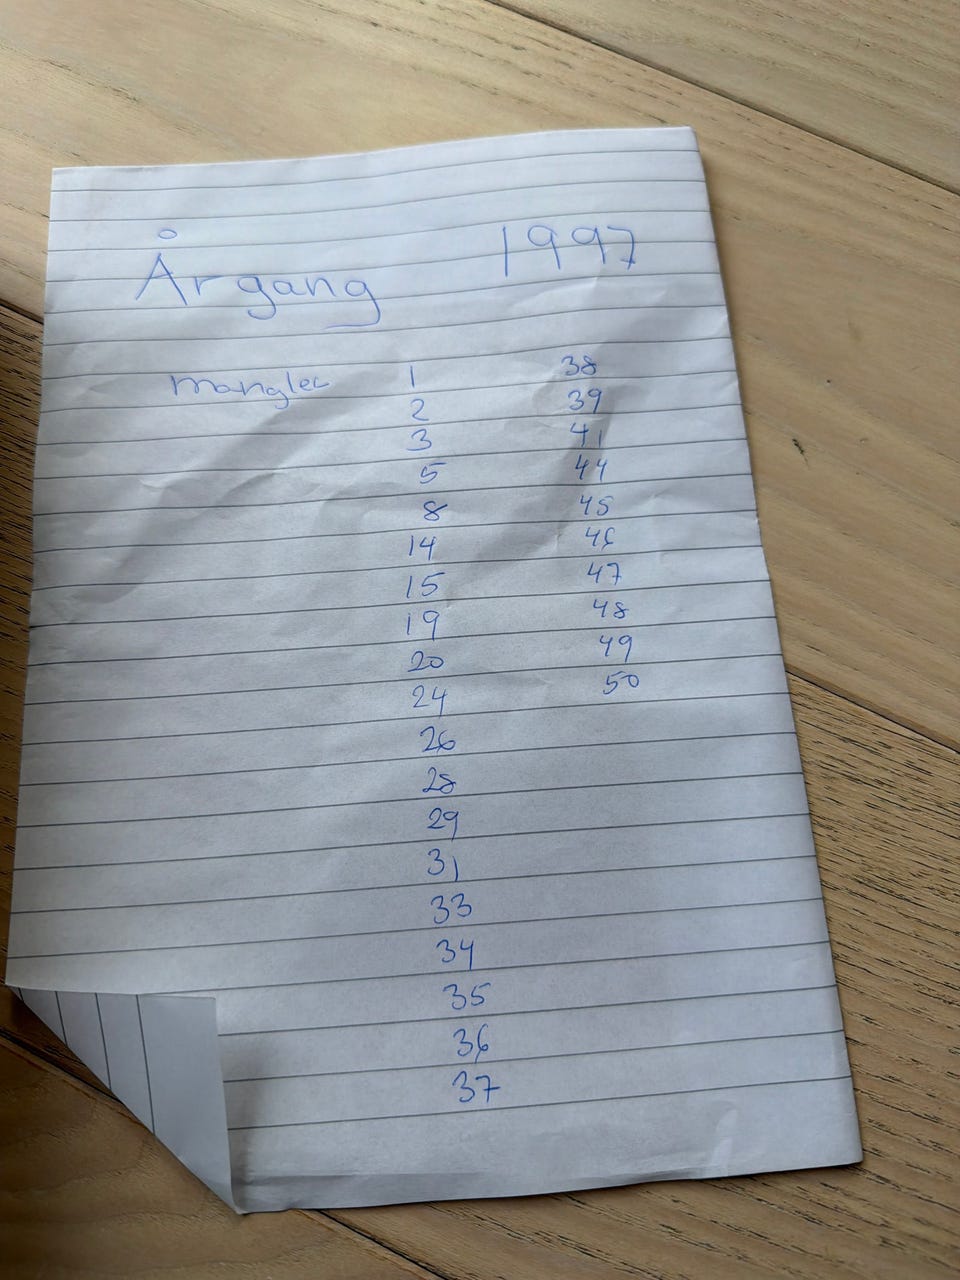 Årgang 1997
mangler 1 38
2 39
3 41
5 44
8 45
14 46
15 47
19 48
20 49
24 50
26
28
29
31
33
34
35
36
37